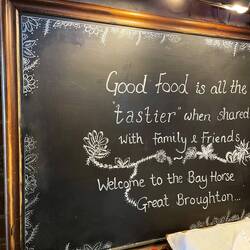 Good Food is all the
"tastier" when shared
with Family & Friends
Welcome to the Bay Horse
Great Broughton...